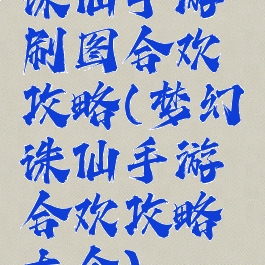 诛仙手游
刷图合欢
攻略(梦幻
诛仙手游
合欢攻略
大全)